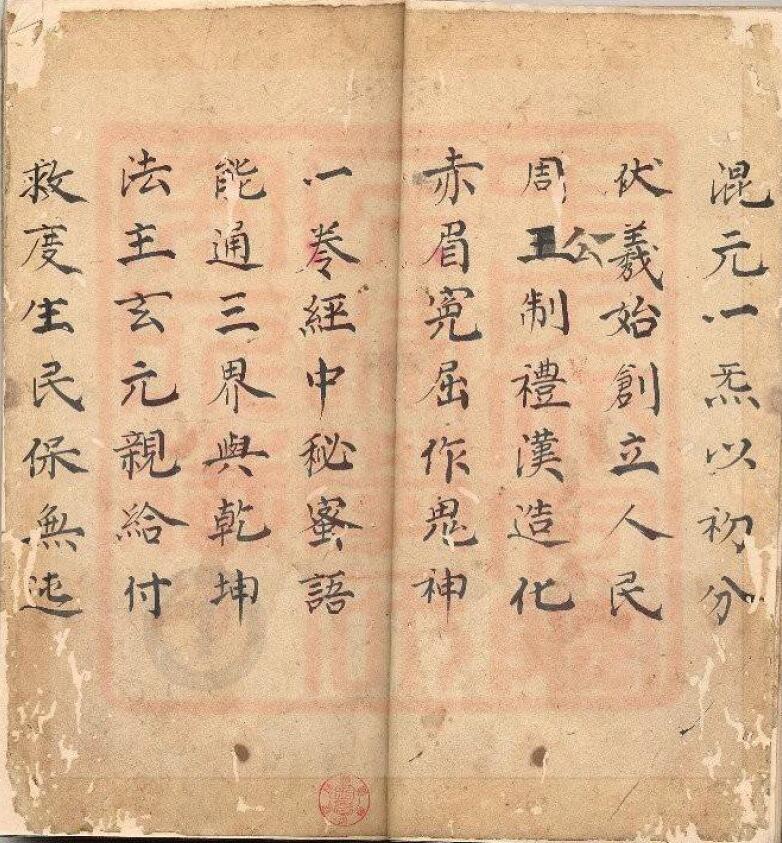 混元一炁以初分
伏羲始創立人民
周公制禮漢造化
赤眉寃屈作鬼神
一卷經中秘蜜語
能通三界與乾坤
法主玄元親給付
救度生民保無迍